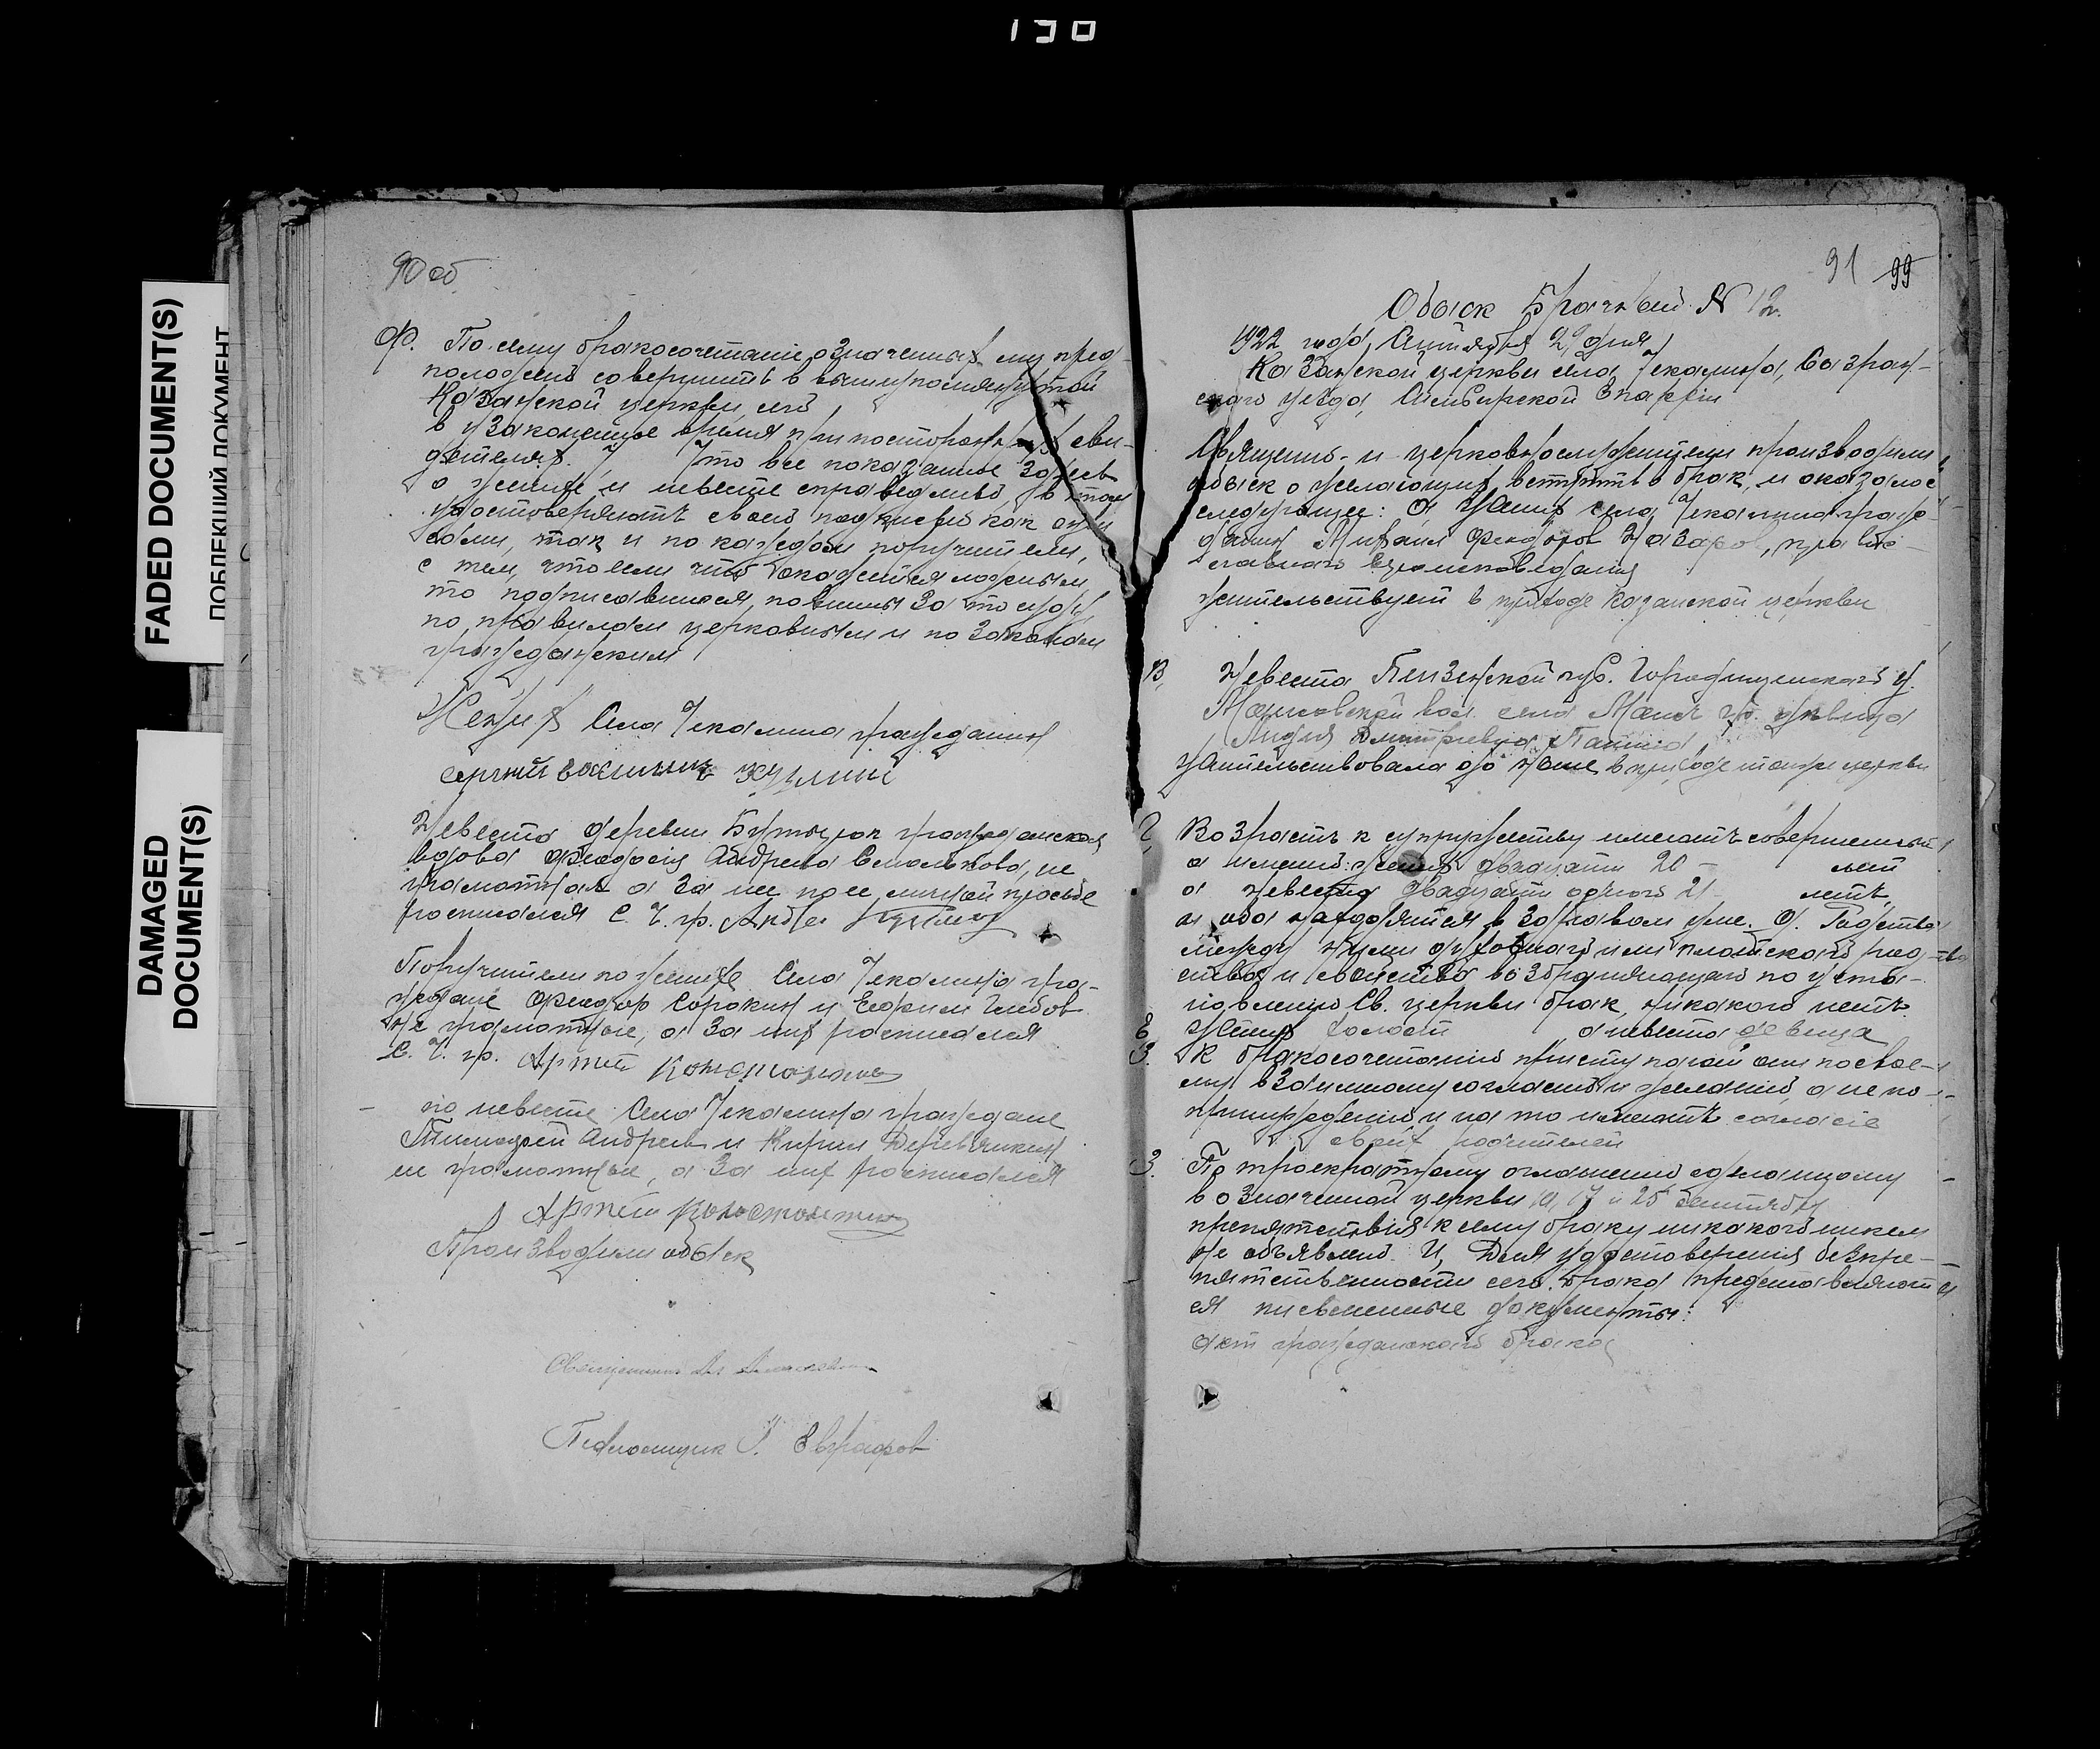 130
FADED DOCUMENT(S)
ПОБЛЕКШИЙ ДОКУМЕНТ
DAMAGED
DOCUMENT(S)
90 об
Ф. По сему бракосочетание означенных лиц пред-
положено совершить в вышеупомянутой
Казанской церкви, ея
в узаконенное время при посторонних сви-
детелях. У Что все показанное здесь
о женихе и невесте справедливо, в том
удостоверяют своею подписью как они
сами, так и по каждом поручители,
с тем, что если что окажется ложным,
то подписавшиеся, повинны за то суду,
по правилам церковным и по законам
гражданским
Жених Села Чекалина гражданин
Сергий
Невеста деревни гражданская
вдова Феодосия Андреева, не
грамотная а за нее по ее личной просьбе
росписался С. Ч. гр.
Поручители по женихе Села Чекалина гра-
ждане Феодор Сорокин и Ефрем Глебов
не грамотные, а за них росписался
С. Ч. гр. Артем
по невесте Села Чекалина граждане
Тимофей Андреев и Кирил
не грамотные, а за них росписался
Артем
Производили обыск
Священник
Псаломщик Евграфов
91 99
Обыск Брачный № 12.
1922 года, Сентября 29 дня
Казанской церкви села Чекалина, Сызран-
скаго уезда, Симбирской Епархии
Священно- и церковнослужители производили
обыск о желающих вступить в брак, и оказалось
следующее: А Жених села Чекалина граж-
данин Михаил Феодоров Назаров, право-
славнаго вероисповедания
жительствует в приходе Казанской церкви
В, Невеста Пензенской губ. Городищенскаго у.
вол. села гр. девица
Лидия Дмитриевна
жительствовала до ныне в приходе тойже церкви
Г, Возраст к супружеству имеют совершенный
а именно: жених двадцати 20 лет
а невеста двадцати одного 21 лет,
и оба находятся в здравом уме. Д. Родства
между ними духовнаго или плотскаго род-ства
ства и свойства возбраняющаго по уста-
новлению Св. церкви брак, никакого нет.
Е. Жених холост, а невеста девица
Э. К бракосочетанию приступают они по свое-
му взаимному согласию и желанию, а не по
принуждению и на то имеют согласие
своих родителей
З. По троекратному оглашению сделанному
в означенной церкви 17 и 25 сентября
препятствия к сему браку никакого никем
не объявлено. И, Для удостоверения безпре-
пятственности сего брака представляют
ся письменные документы:
акт гражданскаго брака